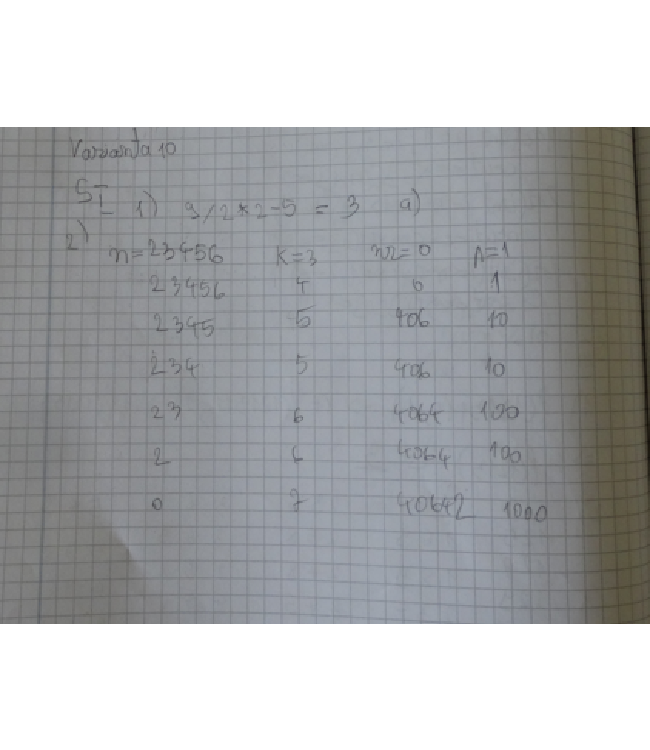 Varianta 10
SI 1) 9/2*2-5 = 3 a)
2) n=23456 K=3 nr=0 p=1
23456 4 6 1
2345 5 406 10
234 5 406 10
23 6 4064 100
2 6 4064 100
0 7 40642 1000